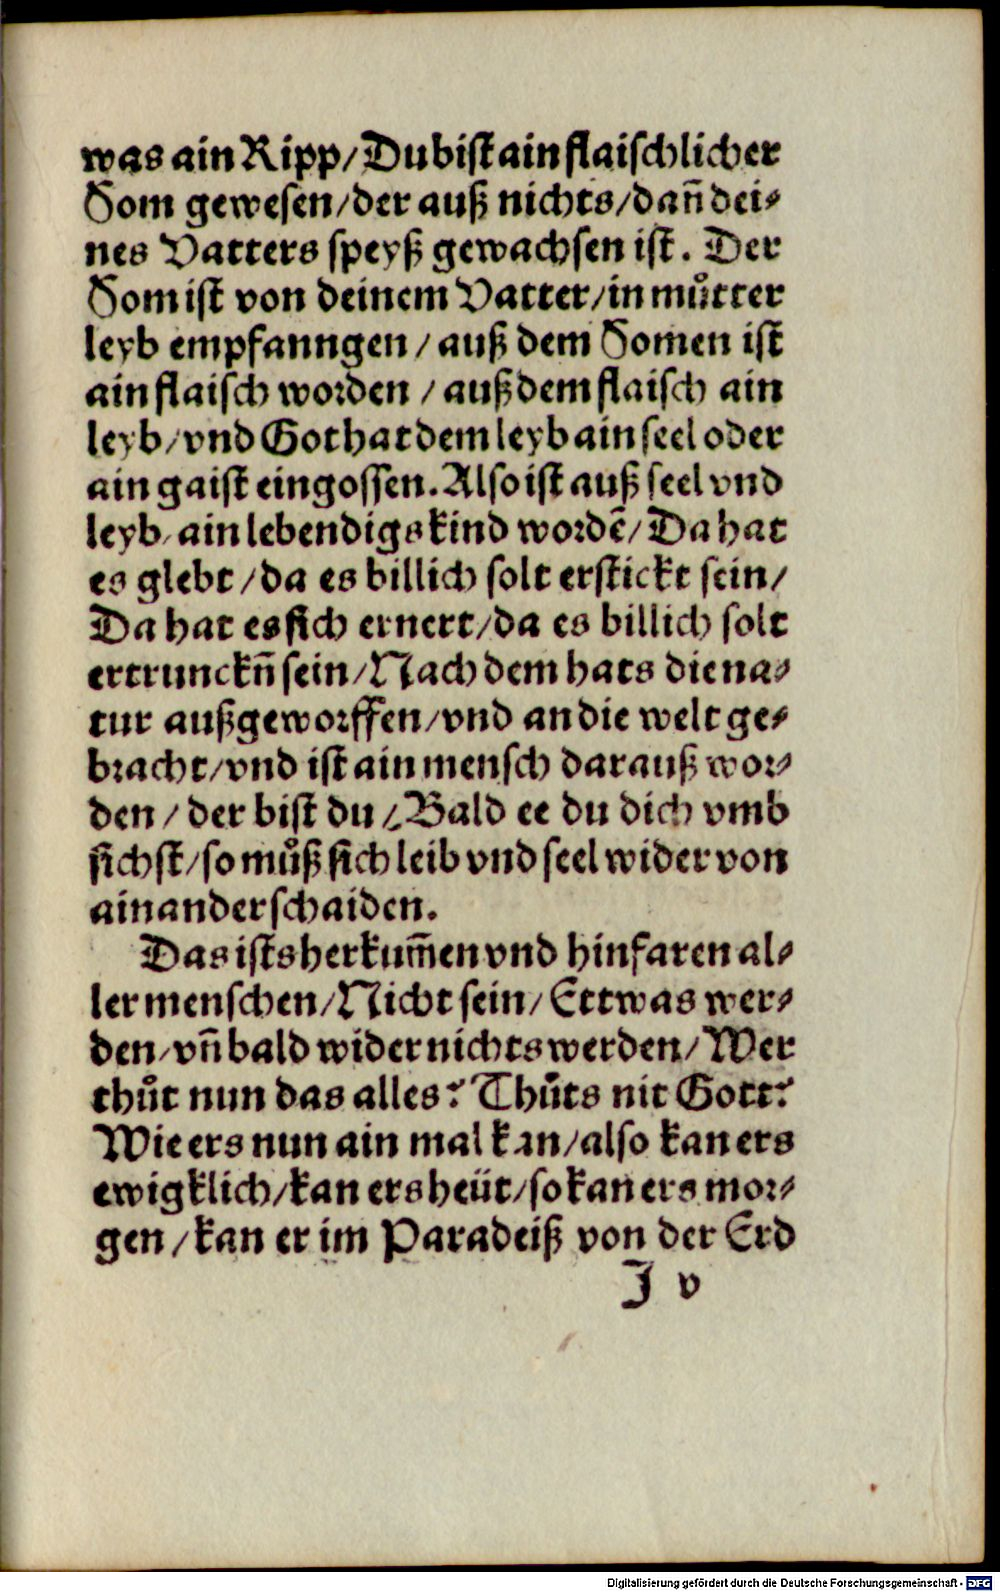 was ain Ripp/Du bist ain flaischlicher
Som gewesen/der auß nichts/dañ dei⸗
nes Vatters speyß gewachsen ist. Der
Som ist von deinem Vatter/in můtter
leyb empfanngen/auß dem Somen ist
ain flaisch worden/auß dem flaisch ain
leyb/vnd Got hat dem leyb ain seel oder
ain gaist eingossen. Also ist auß seel vnd
leyb/ain lebendigs kind wordē/Da hat
es glebt/da es billich solt erstickt sein/
Da hat es sich ernert/da es billich solt
ertrunckñ sein/Nach dem hats die na⸗
tur außgeworffen/vnd an die welt ge⸗
bracht/vnd ist ain mensch darauß wor⸗
den/der bist du/Bald ee du dich vmb
sichst/so můß sich leib vnd seel wider von
ainander schaiden.
Das ists herkum̄en vnd hinfaren al⸗
ler menschen/Nicht sein/Ettwas wer⸗
den/vñ bald wider nichts werden/Wer
thůt nun das alles? Thůts nit Gott?
Wie ers nun ain mal kan/also kan ers
ewigklich/kan ers heüt/so kan ers mor⸗
gen/kan er im Paradeiß von der Erd
J v
Digitalisierung gefördert durch die Deutsche Forschungsgemeinschaft - DFG